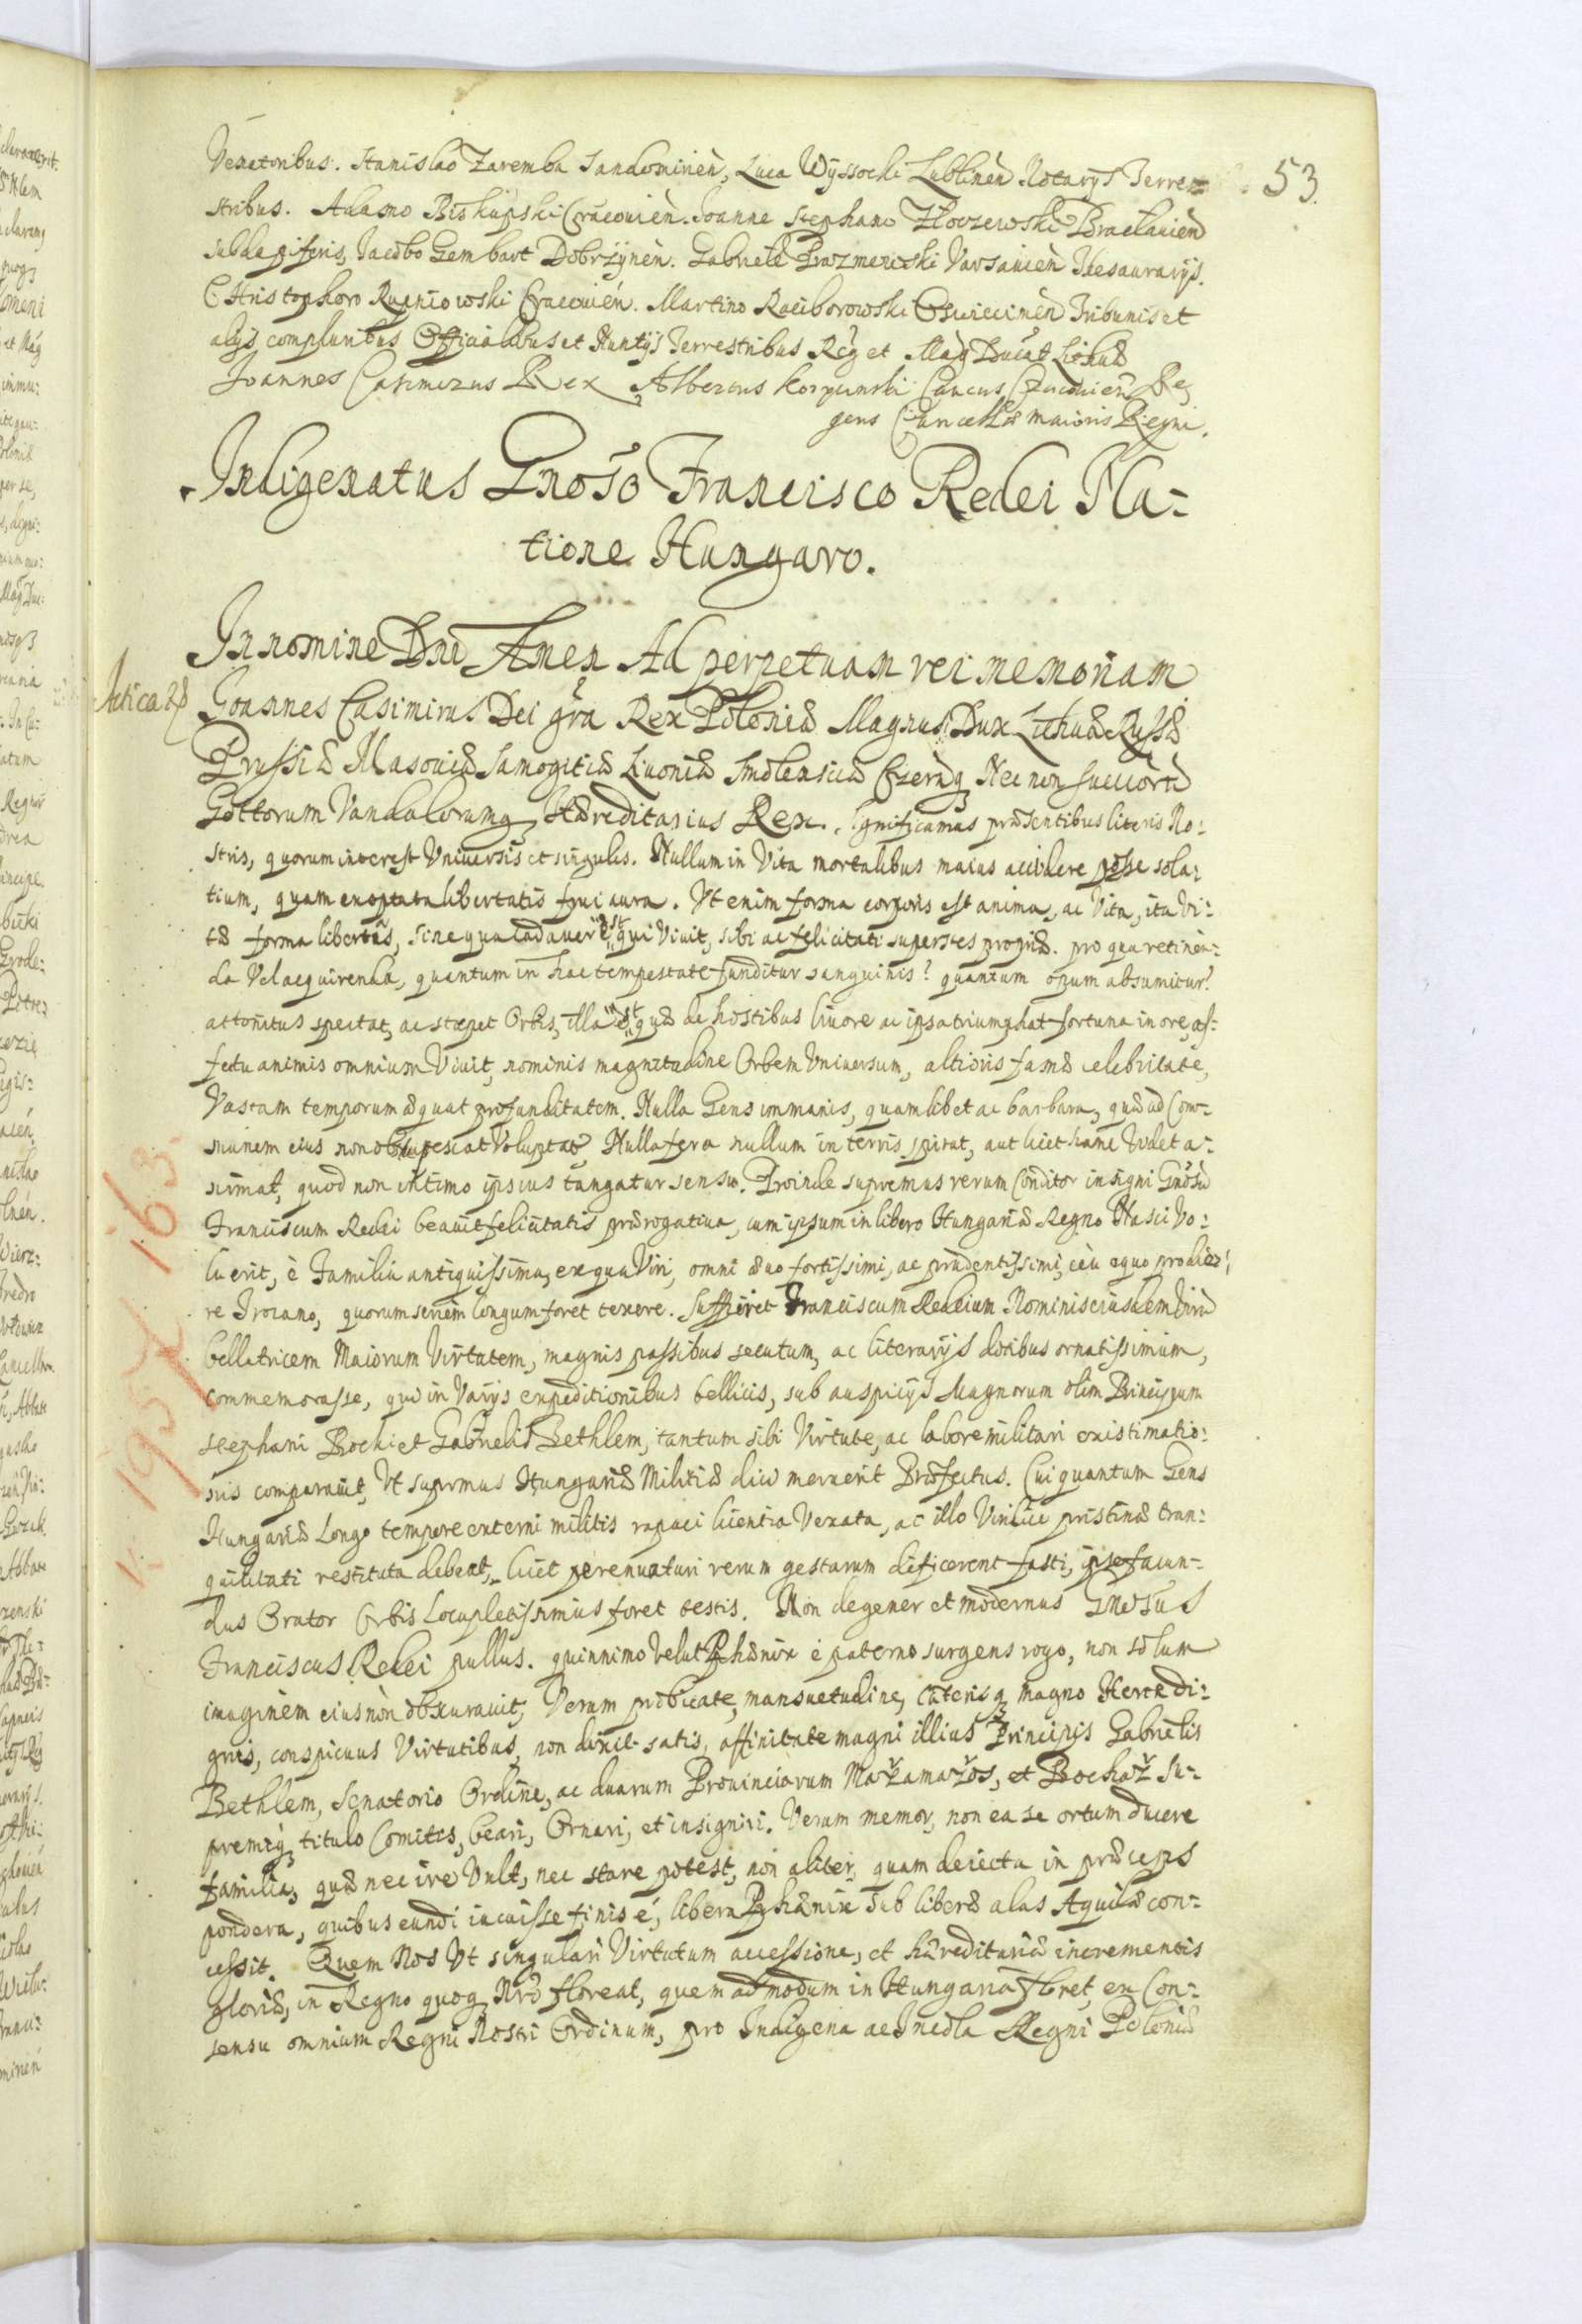 53.
Venatoribus. Stanislao Zaremba Sandomirien, Luca Wyssocki Lublinen Notarys Terre-
stribus. Adamo Biskupski Cracouien. Joanne Stephano Braclauien
subdapiferis, Jacobo Gembart Dobrzynen. Gabriele Prazmewski Varsauien Thesaurarys.
Christophoro Rupniowski Cracouien. Martino Raciborowski Osviecimen Tribunis et
alys compluribus Officialibus et Nuntys Terrestribus Reg et Mag Ducat Lithuae
Joannes Casimirus Rex. Albertus Korycinski Cancus Cracouien Re-
gens Cancellae maioris Regni.
Indigenatus Gnoso Francisco Redei Na-
tione Hungaro.
In nomine Dni Amen Ad perpetuam rei memoriam
Joannes Casimirus Dei gra Rex Poloniae Magnus Dux Lithuae Russae
Prussiae Masouiae Samogitiae Liuoniae Smolensciae Czernq Nec non Suecorū
Gottorum Vandalorumq Haereditarius Rex. Significamus praesentibus literis No-
stris, quorum interest Vniuersis et singulis. Nullum in Vita mortalibus maius accidere posse sola-
tium, quam exoptata libertatis frui aura. Vt enim forma corporis est anima, ac Vita, ita Vi-
tae forma libertas, sine qua cadauer est qui Viuit, sibi ac felicitati superstes propriae. pro qua retinen-
da Vel acquirenda, quantum in hac tempestate funditur sanguinis? quantum opum absumitur?
attonitus spectat, ac stupet Orbis, illa est quae de hostibus liuore ac ipsa triumphat fortuna in ore, af-
fectu animis omnium Viuit, nominis magnitudine Orbem Vniuersum, altioris famae celebritate,
Vastam temporum aequat profunditatem. Nulla Gens immanis, quamlibet ac barbara, quae ad Com-
munem eius non obstupescat Voluptatē Nulla fera nullum in terris spirat, aut licet hanc Videt a-
nimat, quod non intimo ipsius tangatur sensu. Proinde supremus rerum Conditor insigni Gnosū
Franciscum Redei beauit felicitatis praerogatiua, cum ipsum in libero Hungariae Regno Nasci Vo-
luerit, è Familia antiquissima, ex qua Viri, omni aeuo fortissimi, ac prudentissimi, ceu equo prodiere
re Troiano, quorum seriem longum foret texere. Sufficiet Franciscum Redeium Nominis eiusdem Virū
bellatricem Maiorum Virtutem, magnis passibus secutum, ac literarys dotibus ornatissimum,
commemorasse, qui in Varys expeditionibus bellicis, sub auspicys Magnorum olim Principum
Stephani Bochi et Gabrielis Bethlem, tantum sibi Virtute, ac labore militari existimatio-
nis comparauit, Vt supremus Hungariae Militiae dici meruerit Praefectus. Cui quantum Gens
Hungariae Longo tempore externi militis rapaci licentia Vexata, ac illo Vindice pristinae tran-
quilitati restituta debeat, licet perennaturi rerum gestarum deficerent fasti, ipse facun-
dus Orator Orbis Locupletissimus foret testis. Non degener et modernus Gnosus
Franciscus Redei pullus. quinnimo velut Phaenix è paterno surgens rogo, non solum
imaginem eius non obscurauit, Verum probitate, mansuetudine, caeterisq magno Herede di-
gnis, conspicuus Virtutibus, non dixit satis, affinitate magni illius Principis Gabrielis
Bethlem, Senatorio Ordine, ac duarum Prouinciarum Marzamaros, et Bochar su-
premiq titulo Comitis, beari, Ornari, et insigniri. Verum memor, non ea se ortum ducere
familia, quae nec ire Vult, nec stare potest, non aliter, quam deiecta in praeceps
pondera, quibus eundi iacuisse finis é, libera Phaenix sub liberae alas Aquilae con-
cessit. Quem Nos Vt singulari Virtutum accessione, et haereditariae incrementis
gloriae, in Regno quoq Nro floreat, quemadmodum in Hungaria floret, ex Con-
sensu omnium Regni Nostri Ordinum, pro Indigena ac Incola Regni Poloniae